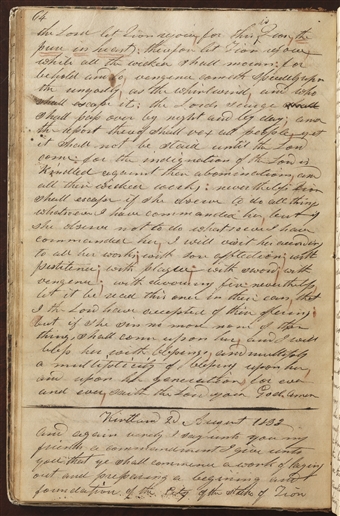 64
the Lord let Zion rejoice, for this is Zion, the
pure in heart; therefore let Zion rejoice
while all the wicked shall mourn: for
behold and lo, vengence cometh speedily upon
the ungodly, as the whirlwind, and who
shall escape it; the Lords scourge
shall pass over by night and by day; and
the report thereof shall vex all people, yet
it shall not be staid until the Lord
come; for the indignation of the Lord is
kindled against their abominations, and
all their wicked works; nevertheless Zion
shall escape if she observe to do all things
whatsoever I have commanded her, but if
she observe not to do whatsoever I have
commanded her, I will visit her according
to all her works; with sore affliction; with
pestilence; with plague; with sword; with
vengence; with devouring fire: nevertheless,
let it be read this once in their ears, that
I the Lord have accepted of their offering;
but if she sin no more none of these
things shall come upon her, and I will
bless her with blessings, and multiply
a multiplicity of blessings upon her,
and upon her generations, for ever
and ever, saith the Lord your God, amen
Kirtland 2d August 1833
And again verily I say unto you my
friends a commandment I give unto
you that ye shall commence a work of laying
out and preparing a beginning and
foundation of the City of the Stake of Zion